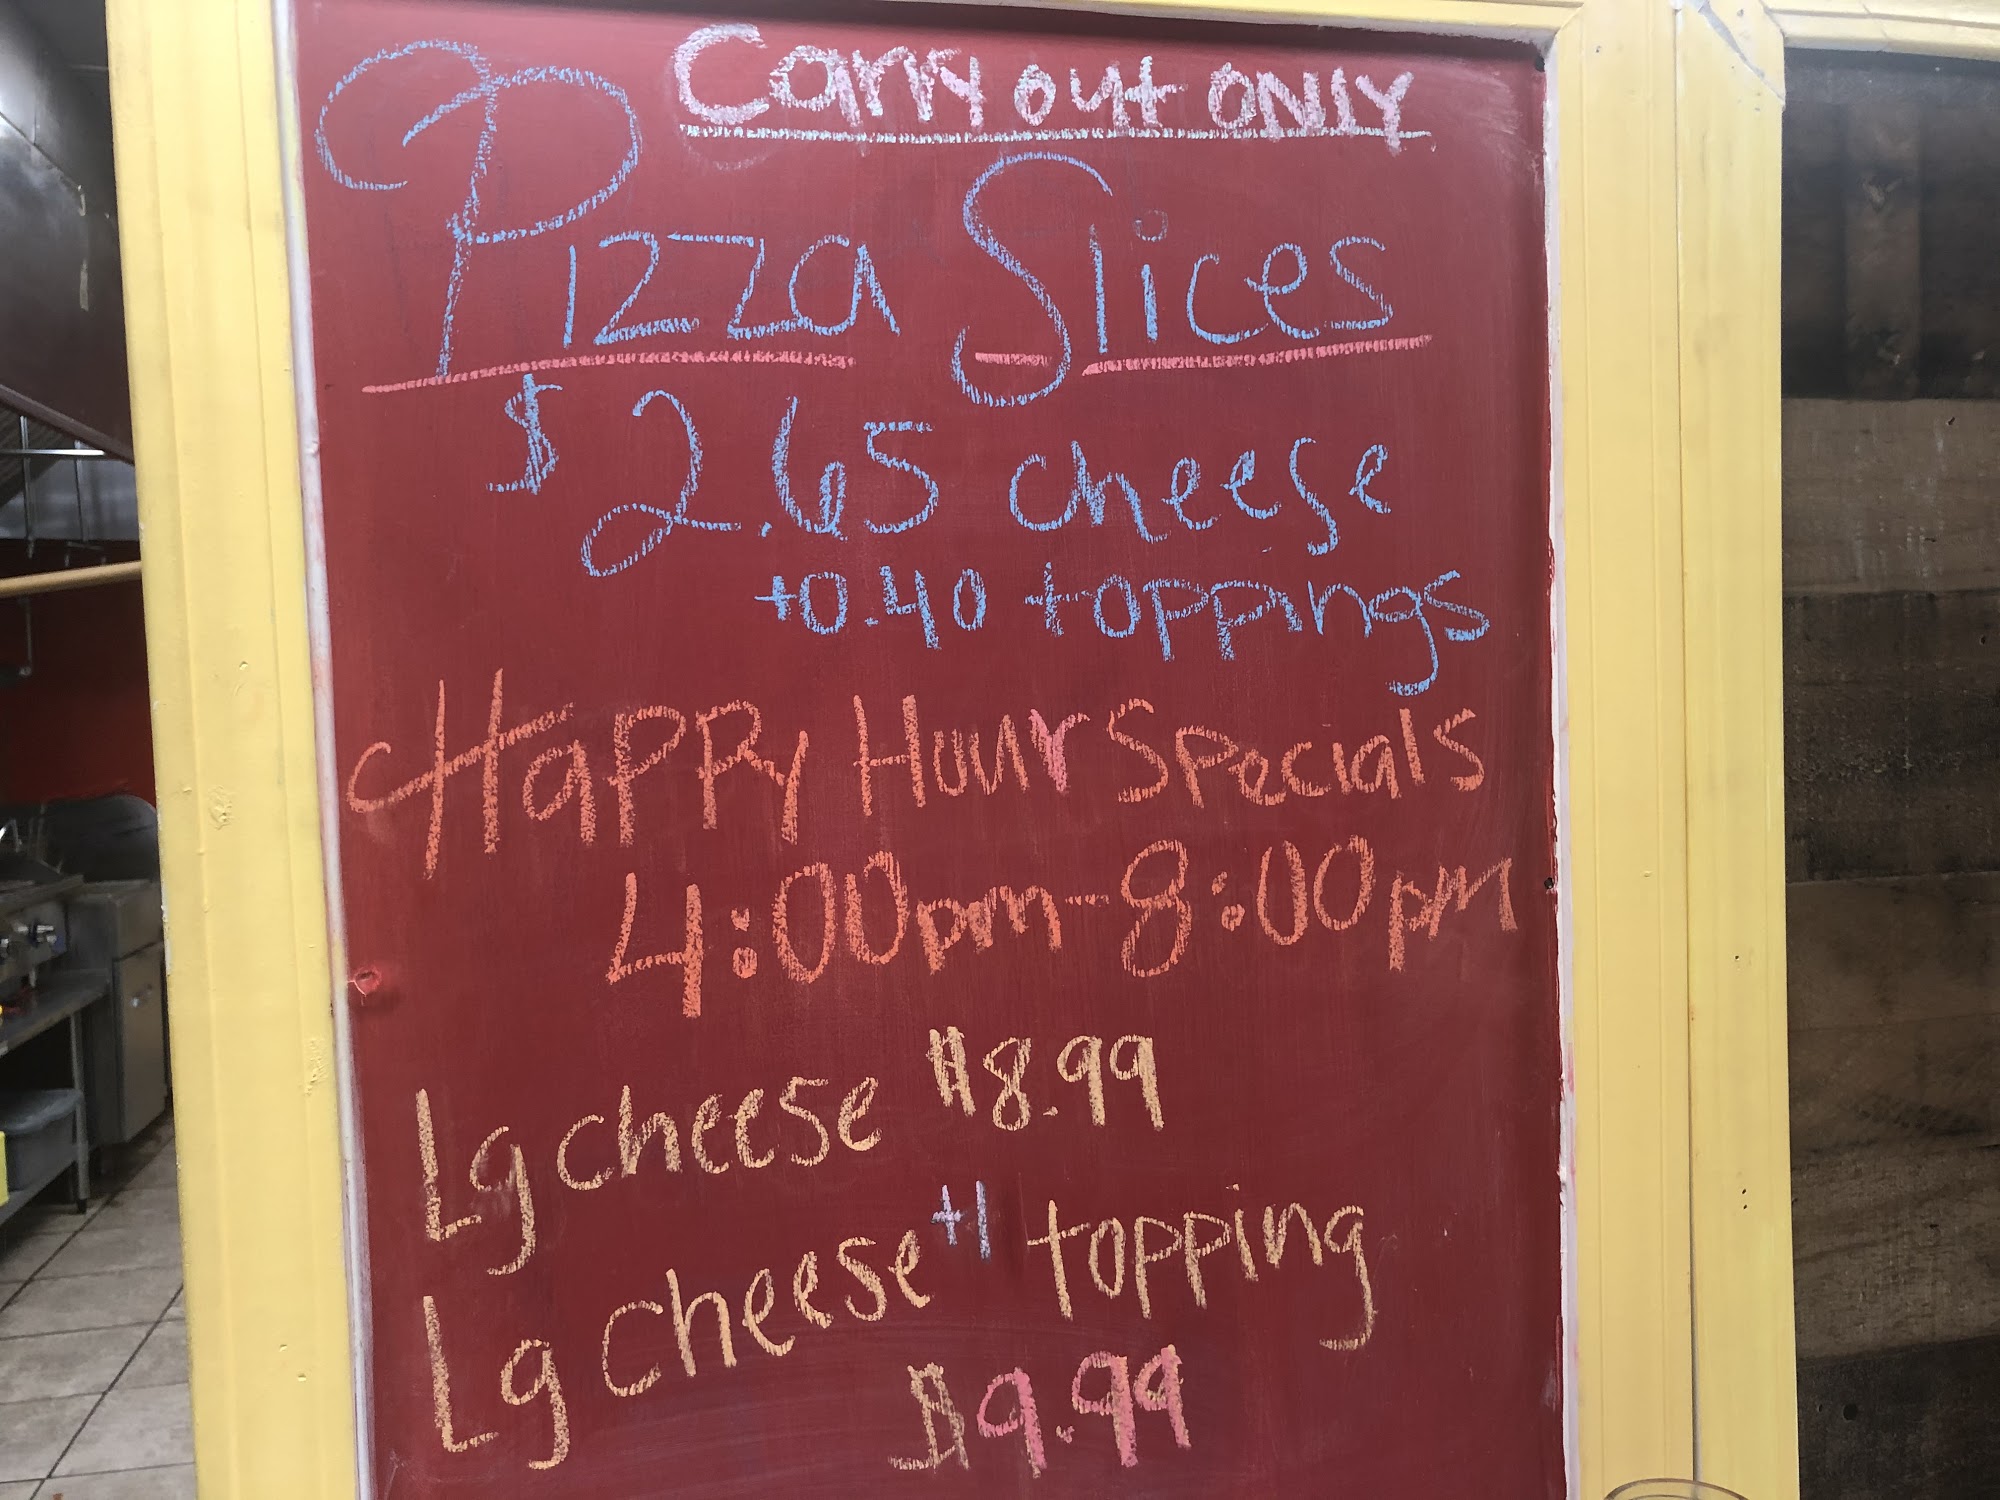 Carry out ONLY
Pizza Slices
$2.65 cheese
+0.40 toppings
Happy Hour Specials
4:00pm-8:00pm
Lg cheese $8.99
Lg cheese +1 topping
$9.99